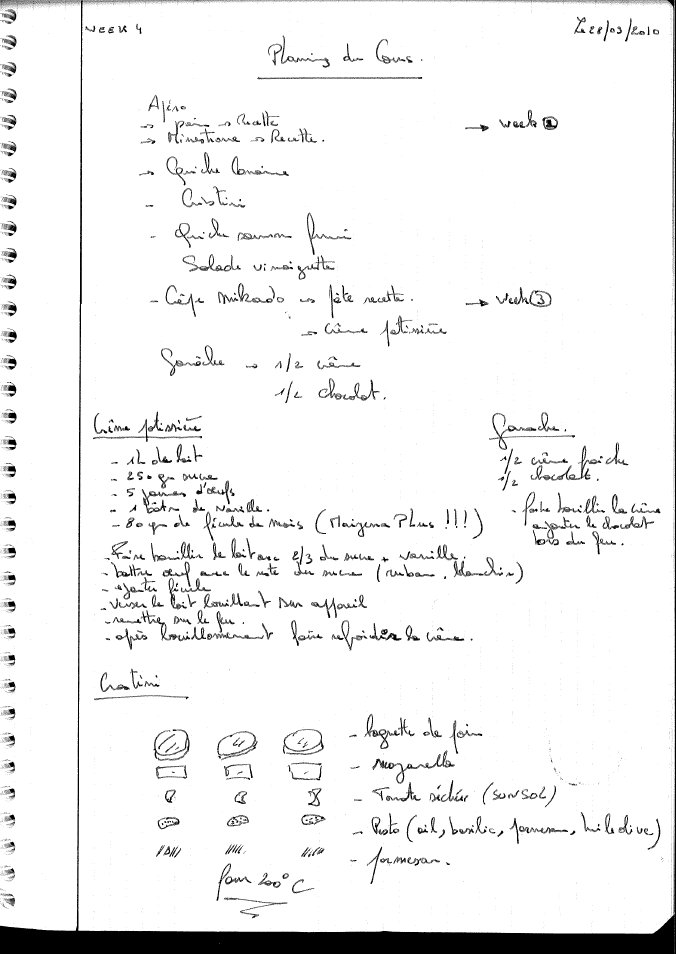 WEEK 4
Le 28/03/2010
Planning du Cours.
Apéro
→ pain → Recette
→ week 2
→ Minestrone → Recette.
→ Quiche Lorraine
- Crostini
- Quiche saumon fumé
Salade vinaigrette
- Crêpe Mikado → pâte recette.
→ week 3
→ crème pâtissière
Ganâche → 1/2 crème
1/2 chocolat.
Crème pâtissière
- 1L de lait
- 250 gr sucre
- 5 jaunes d'œufs
- 1 bâton de vanille.
- 80 gr de fécule de maïs (Maïzena Plus !!!)
- Faire bouillir le lait avec 2/3 du sucre + vanille.
- battre œuf avec le reste du sucre (ruban, blanchir)
- ajouter fécule
- verser le lait bouillant sur appareil
- remettre sur le feu.
- après bouillonnement faire refroidir la crème.
Ganache.
1/2 crème fraiche
1/2 chocolat.
- faire bouillir la crème
ajouter le chocolat
hors du feu.
Crostini
- baguette de pain
- Mozarella
- Tomate séchée (SUNSOL)
- Pesto (ail, basilic, parmesan, huile dive)
- parmesan.
four 200°C